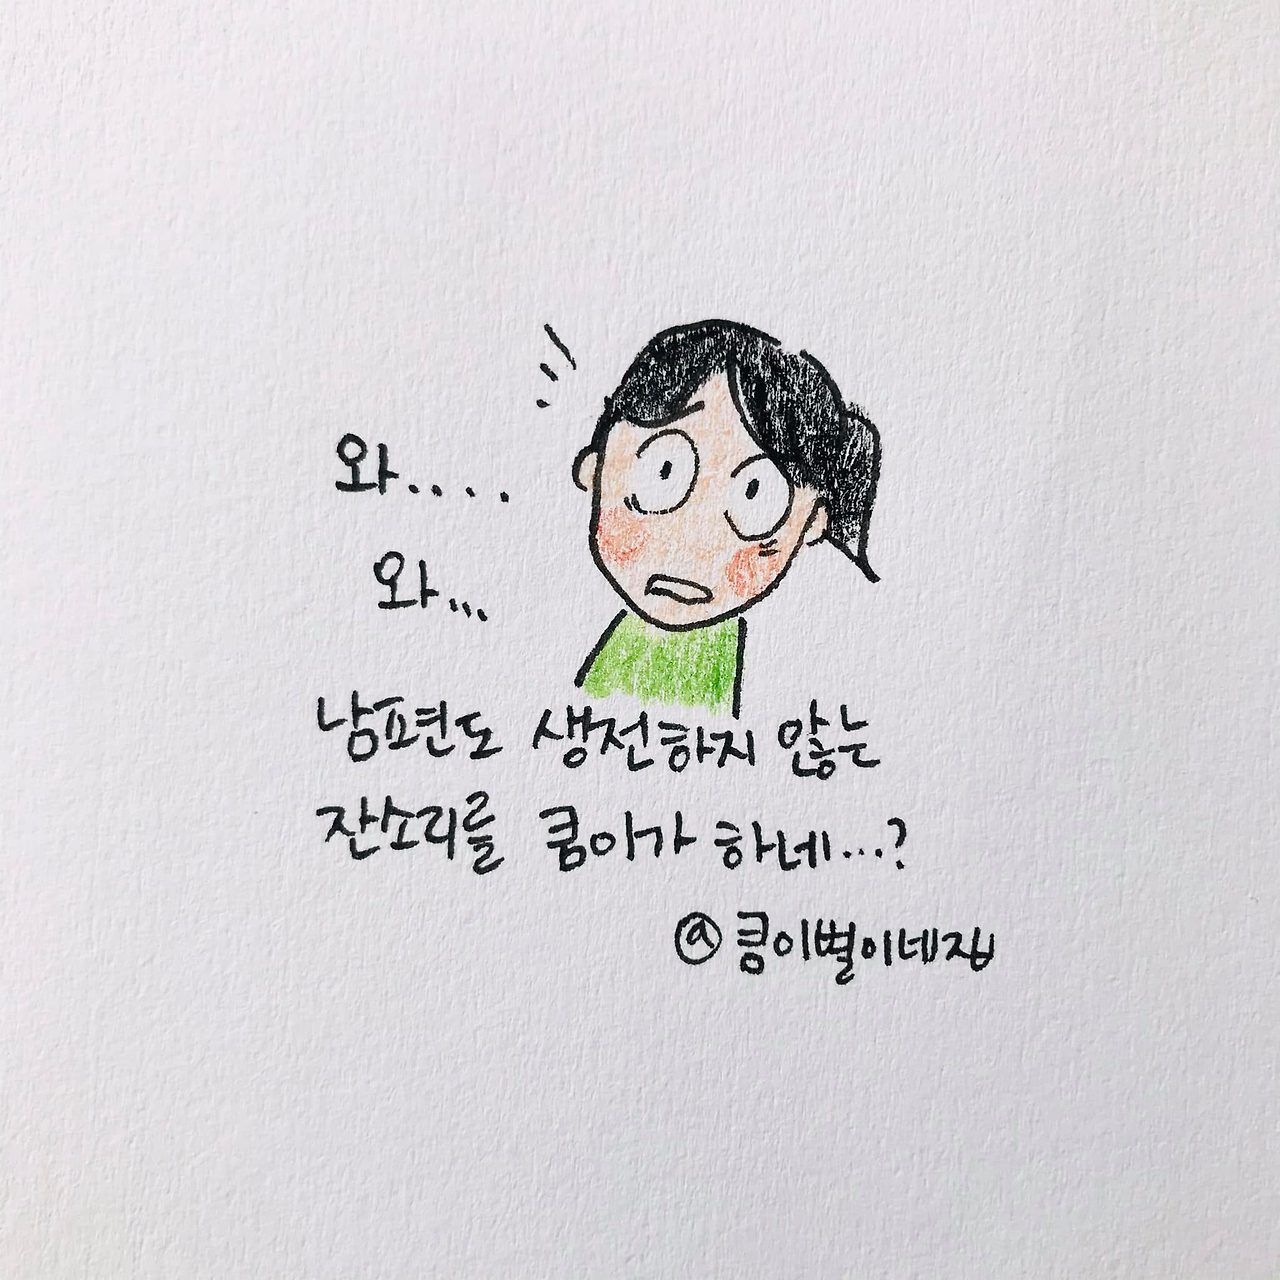 와....
와...
남편도 생전하지 않는
잔소리를 쿰이가 하네...?
@쿰이별이네집